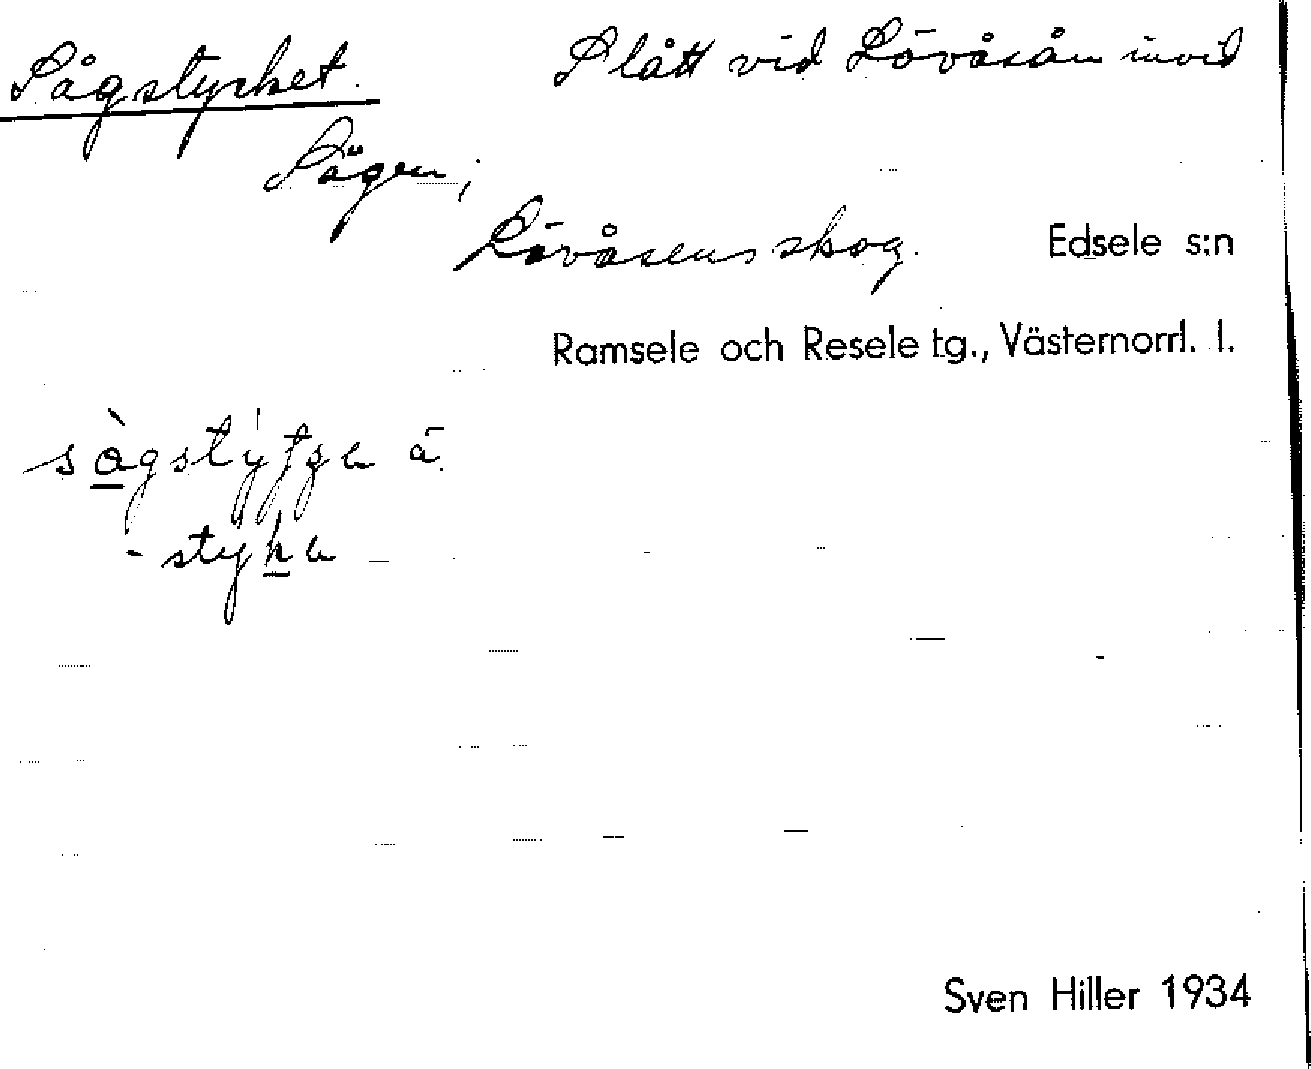 Sågstycket. Slått vid Lövåsån invid
Sågen;
Lövåsens skog. Edsele s:n
Ramsele och Resele tg., Västernorrl. l.
-styka
Sven Hiller 1934